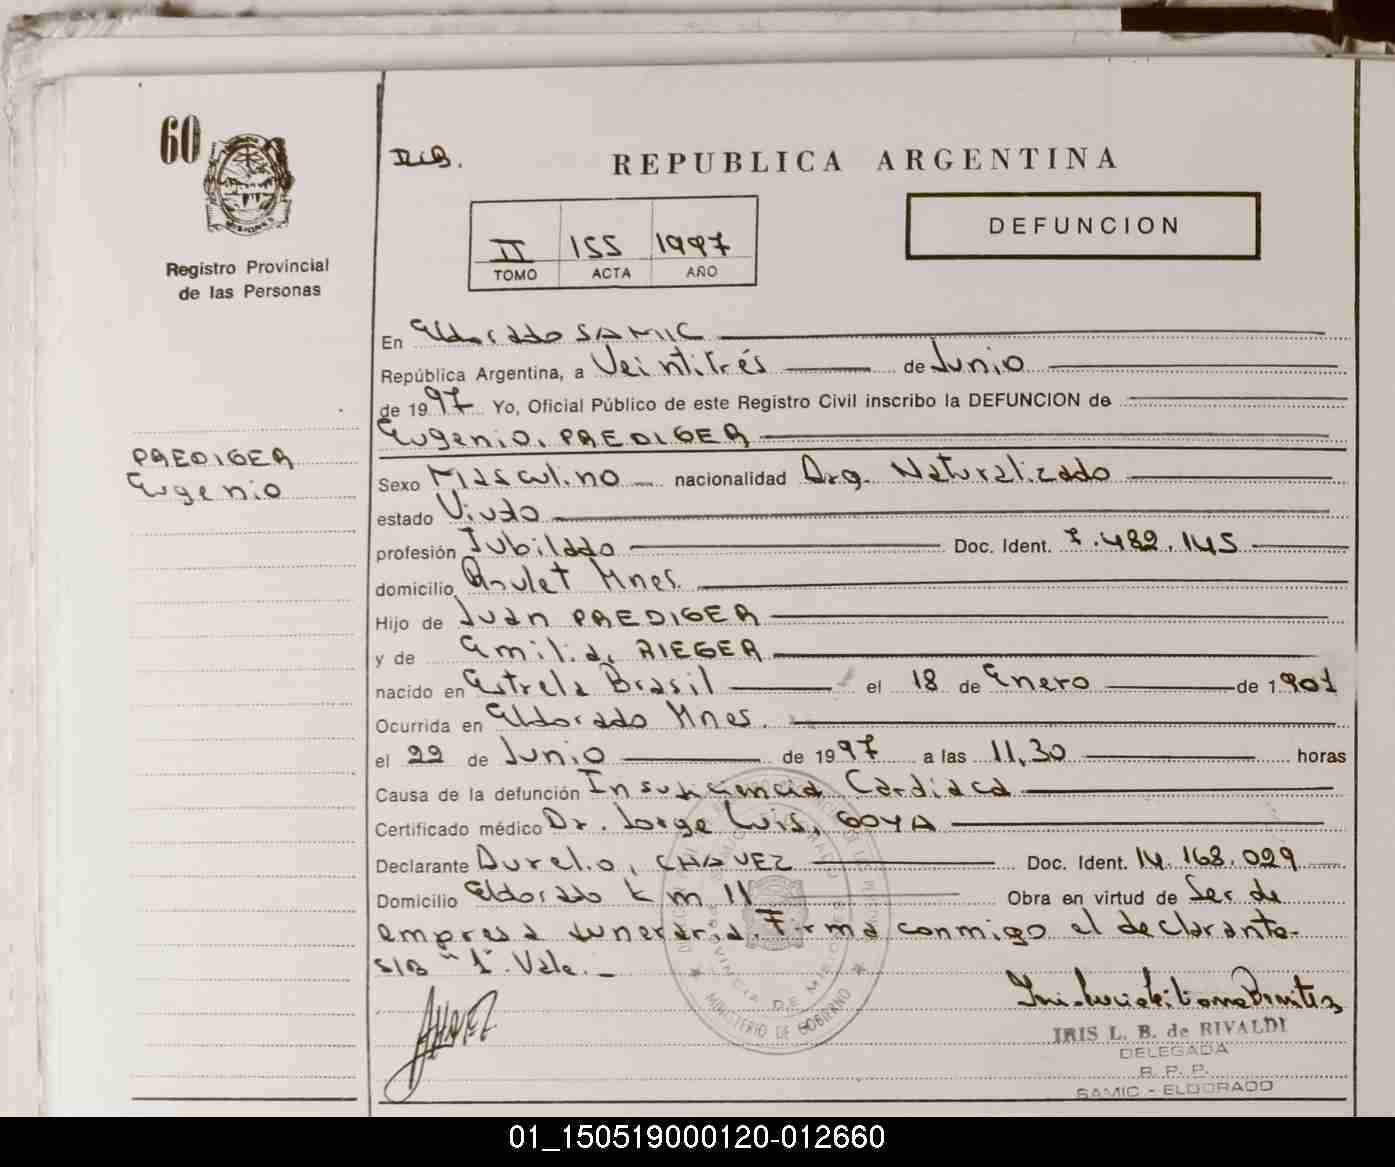 60
Registro Provincial
de las Personas
PREDIGER
Eugenio
REPUBLICA ARGENTINA
DEFUNCION
II 155 1997
TOMO ACTA AÑO
En Eldorado SAMIC
República Argentina, a Veintitrés de Junio
de 1997 Yo, Oficial Público de este Registro Civil inscribo la DEFUNCION de
Eugenio, PREDIGER
Sexo Masculino nacionalidad Arg. Naturalizado
estado Viudo
profesión Jubilado Doc. Ident. 7.482.145
domicilio Mnes.
Hijo de Juan PREDIGER
y de Emilia, RIEGER
nacido en Estrela Brasil el 18 de Enero de 1901
Ocurrida en Eldorado Mnes.
el 22 de Junio de 1997 a las 11,30 horas
Causa de la defunción Insuficiencia Cardiaca
Certificado médico Dr. Jorge Luis, GOYA
Declarante Aurelio, CHAVEZ Doc. Ident. 14.168.029
Domicilio Eldorado km 11 Obra en virtud de Ser de
empresa funeraria. Firma conmigo el declarante-
S/B "1". Vale.-
MINISTERIO DE GOBIERNO
PROVINCIA DE MISIONES
IRIS L. B. de RIVALDI
DELEGADA
R. P. P.
SAMIC - ELDORADO
01_150519000120-012660